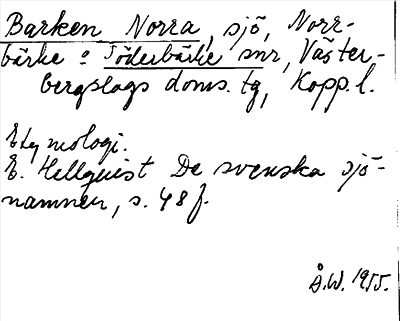 Barken Norra, sjö, Norr-
bärke o Söderbärke snr, Väster-
bergslags doms. tg, Kopp. l.
Etymologi.
E. Hellquist De svenska sjö-
namnen, s. 48 f.
Å.W. 1955.